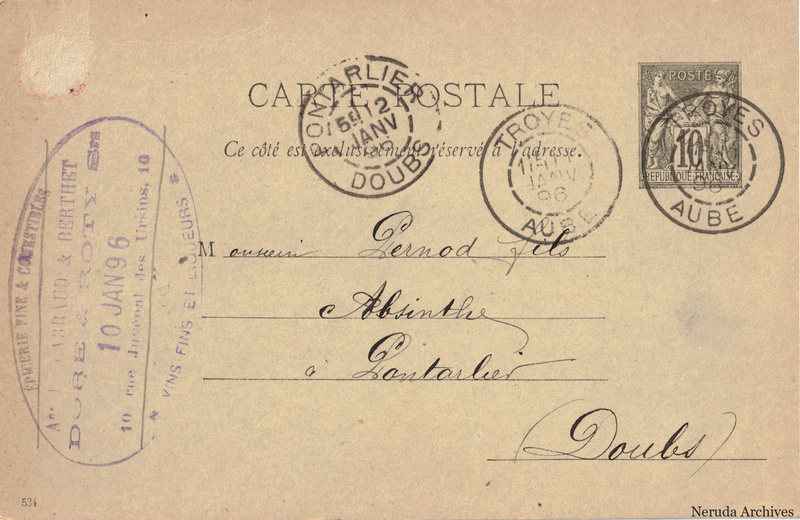 CARTE POSTALE
Ce côté est exclusivement réservé à l'adresse.
POSTE
10
REPUBLIQUE FRANÇAISE
PONTARLIER
12
JANV
DOUBS
TROYES
JANV
96
AUBE
TROYES
96
AUBE
Monsieur Pernod fils
Absinthe
à Pontarlier
(Doubs)
EPICERIE FINE & COMESTIBLES
& BERTHET
DORÉ & ROTY
10 JAN 96
10 rue Juvénal des Ursins, 10
* VINS FINS ET LIQUEURS *
534
Neruda Archives